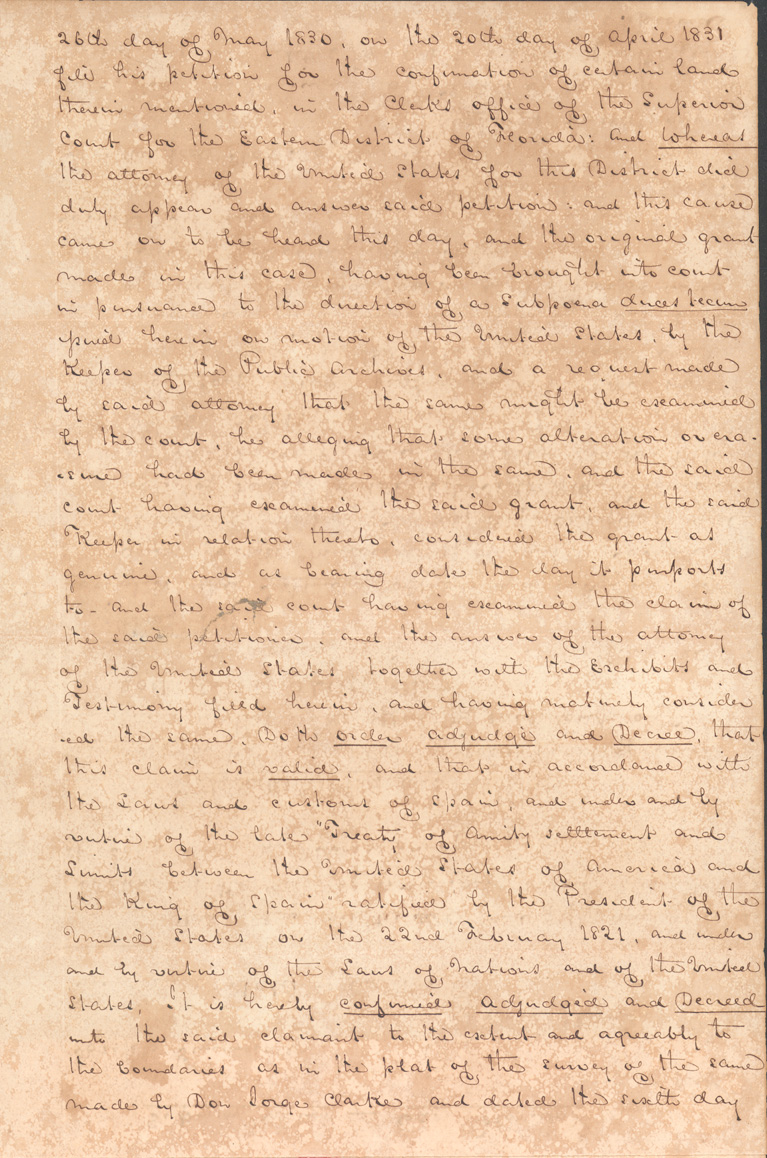 26th day of May 1830, on the 20th day of April 1831
file his petition for the confirmation of certain land
therein mentioned, in the Clerks office of the Superior
Court for the Eastern District of Florida: and whereas
the attorney of the United States for this District did
duly appear and answer said petition: and this cause
came on to be heard this day, and the original grant
made in this case, having been brought into court
in pursuance to the direction of a Subpoena duces tecum
herein on motion of the United States, by the
Keeper of the Public Archives, and a request made
by said attorney that the same might be escammined
by the court, he alleging that some alteration or era-
-sure had been made in the same, and the said
court having escammined the said grant, and the said
Keeper in relation thereto, considered the grant as
genuine, and as bearing date the day it purports
to- and the said court having escammined the claim of
the said petitioner, and the answer of the attorney
of the United States together with the Exchibits and
Testimony filed herein, and having maturely consider
-ed the same, Doth order adjudge and Decree, that
this claim is valid, and that in accordance with
the Laws and customs of Spain, and under and by
virtue of the late "Treaty of amity settlement and
Limits between the United States of America and
the King of Spain" ratified by the President of the
United States on the 22nd February 1821, and under
and by virtue of the Laws of Nations and of the United
States, It is hereby confirmed adjudged and Decreed
unto the said claimant to the esctent and agreeably to
the boundaries as in the plat of the survey of the same
made by Don Jorge Clarke and dated the sixth day